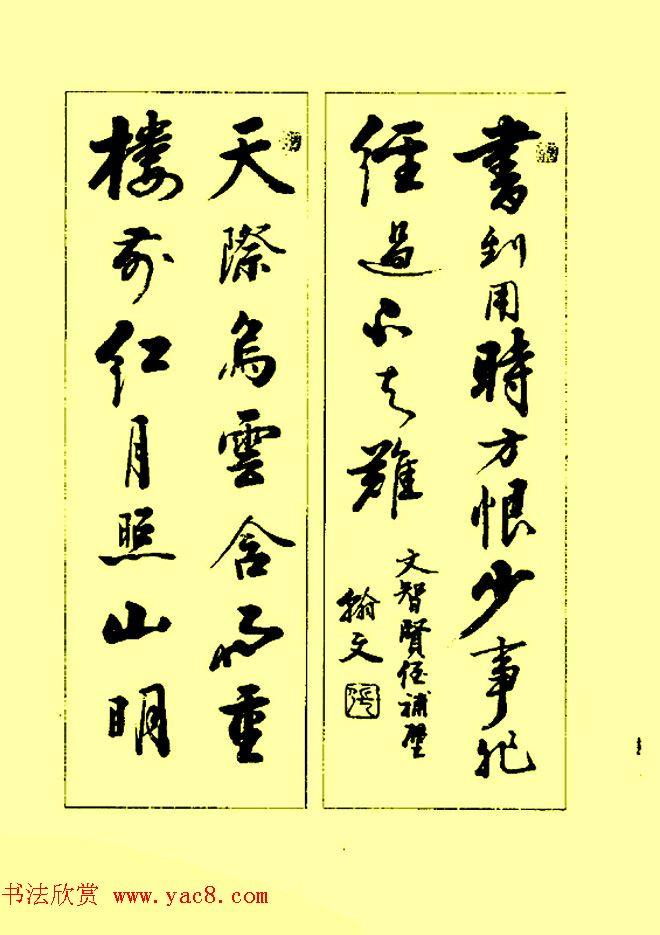 書到用時方恨少事非
經過不知難
文智賢侄補壁
翰文
天際烏雲含雨重
樓前紅月照山明
书法欣赏 www.yac8.com